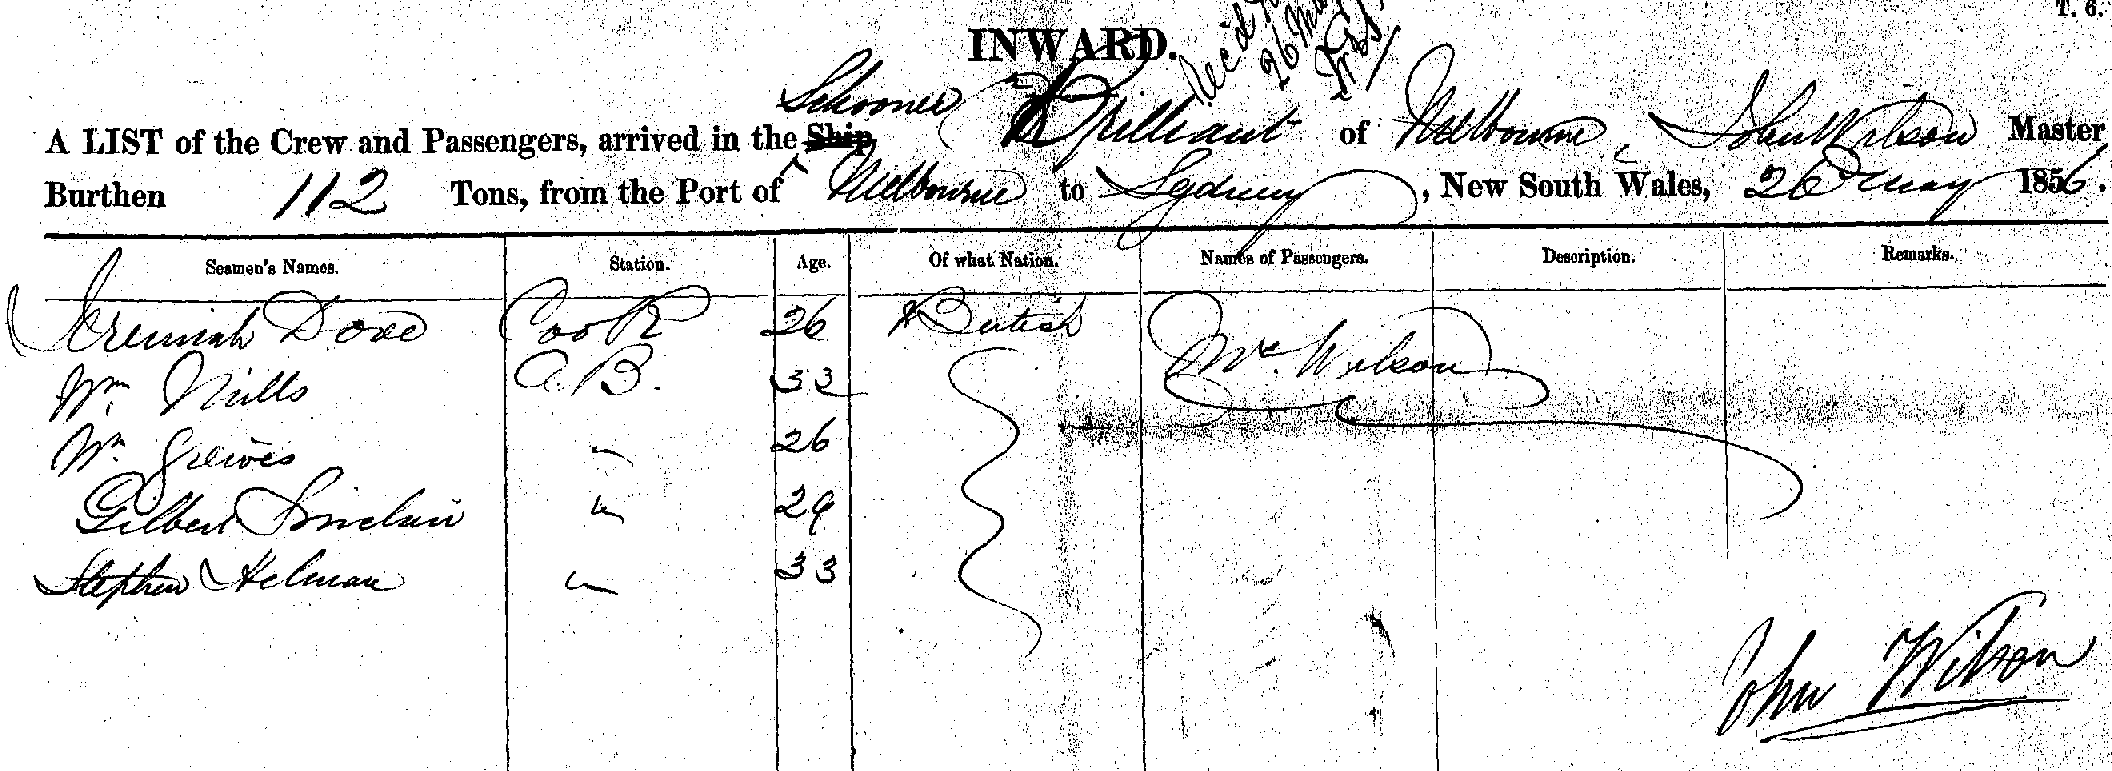 T. 6.
INWARD.
Rec'd
26 May
Schooner
A LIST of the Crew and Passengers, arrived in the Ship Brilliant of Melbourne, John Wilson Master
Burthen 112 Tons, from the Port of Melbourne to Sydney, New South Wales, 26 May 1856.
Seamen's Names. Station. Age. Of what Nation. Names of Passengers. Description. Remarks.
Jeremiah Dove Cook 26 British
Mr. Wilson
Wm Mills A.B. 32
Wm 26
Gilbert Sinclair " 29
Stephen " 33
John Wilson